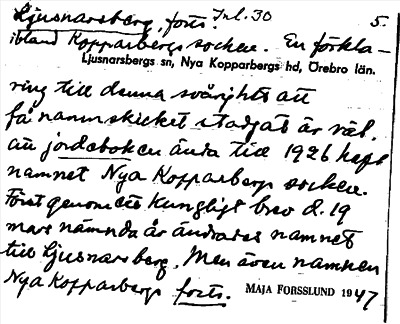 Ljusnarsberg, forts. Inl. 30 5.
ibland Kopparbergs socken. En förkla-
Ljusnarsbergs sn, Nya Kopparbergs hd, Örebro län.
ring till denna svårighet att
få namnskicket stadgat är väl,
att jordeboken ända till 1926 haft
namnet Nya Kopparbergs socken.
Först genom ett kungligt brev d. 19
mars nämnda år ändrades namnet
till Ljusnarsberg. Men även namnen
Nya Kopparbergs forts. MAJA FORSSLUND 1947